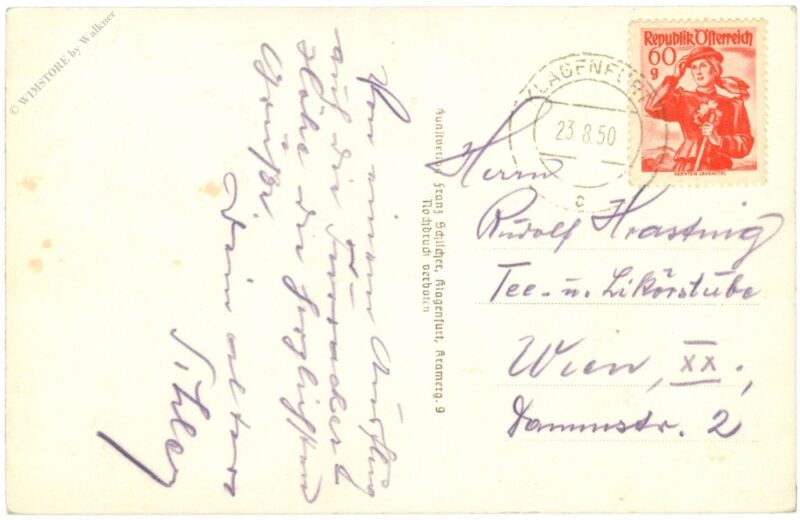 © WIMSTORE by Walkner
Republik Österreich
60
g
KÄRNTEN LAVANTTAL
KLAGENFURT
23.8.50
c
Von einem Ausflug
auf die
die herzlichsten
Grüße
Dein alter
Kunstverlag Franz Schilcher, Klagenfurt, Kramerg. 9
Nachdruck verboten
Herrn
Rudolf Hrastnig
Tee- u. Likörstube
Wien, XX.,
Dammstr. 2